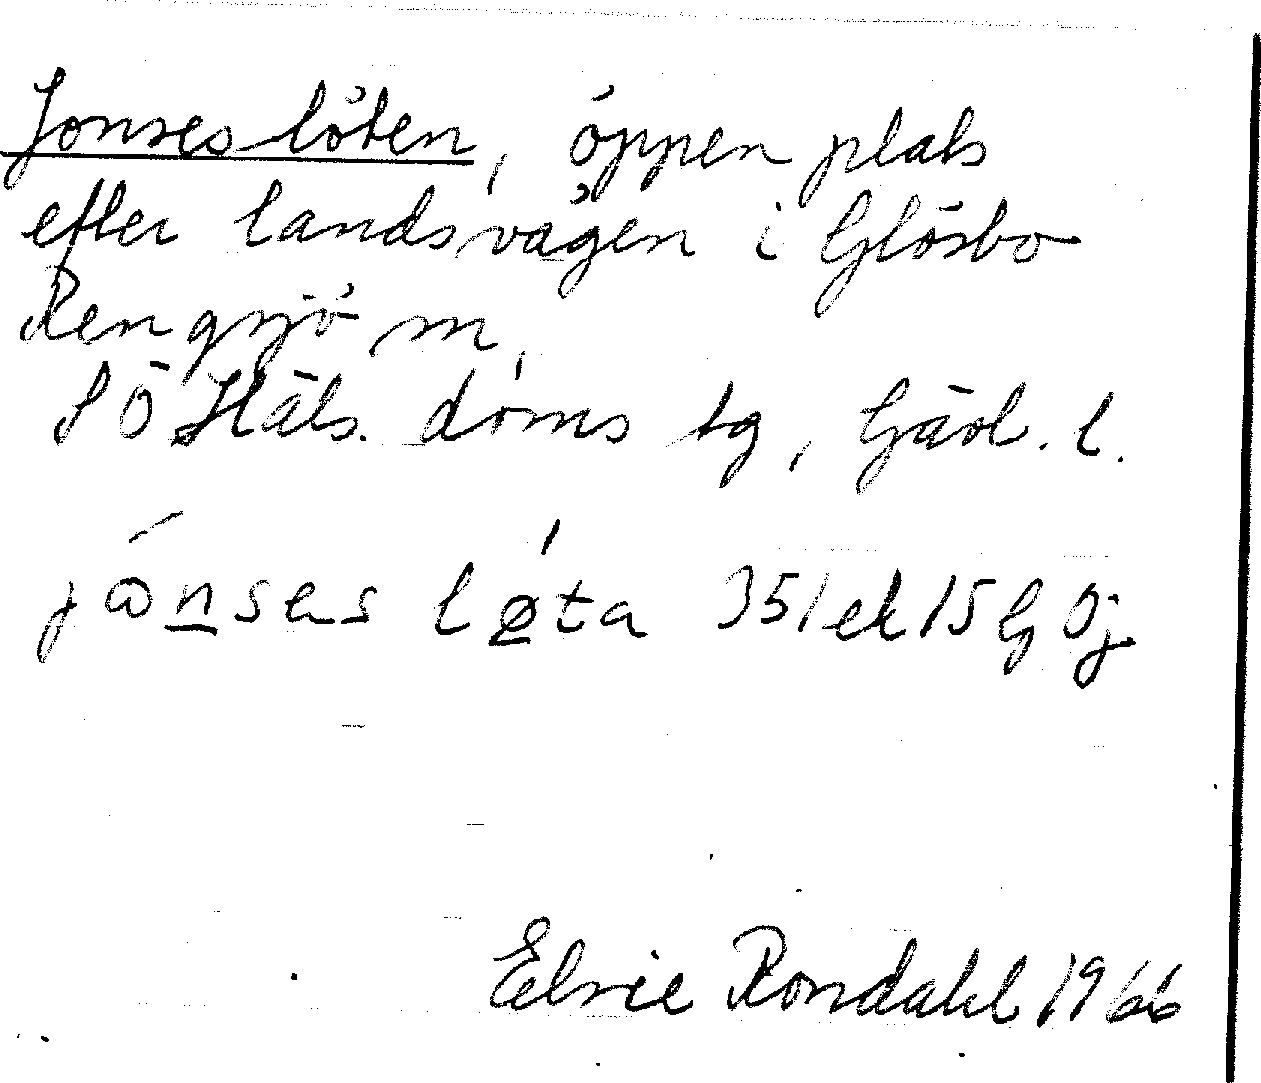 Jonses löten, öppen plats
efter landsvägen i Glösbo
Rengsjö sn,
SÖ Häls. doms tg, Gävl. l.
jånses løta 351 ek 15 G Öj
Elsie Rondahl 1966